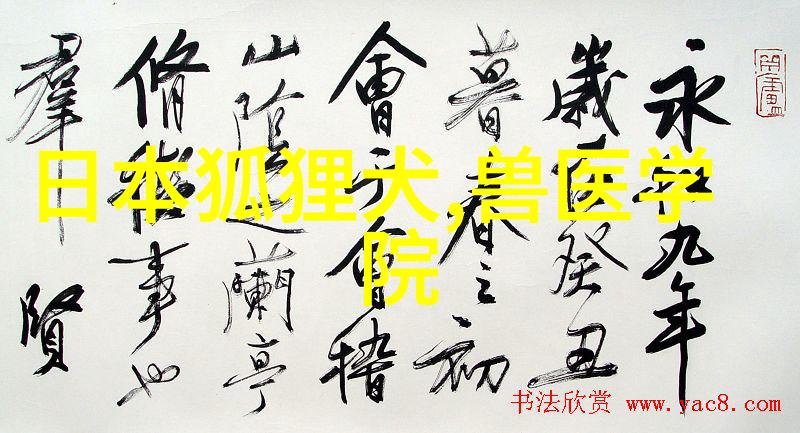 永和九年
歲在癸丑
暮春之初
會于會稽
山陰之蘭亭
脩禊事也
羣賢
日本狐狸犬,兽医学
院
书法欣赏 www.yac8.com